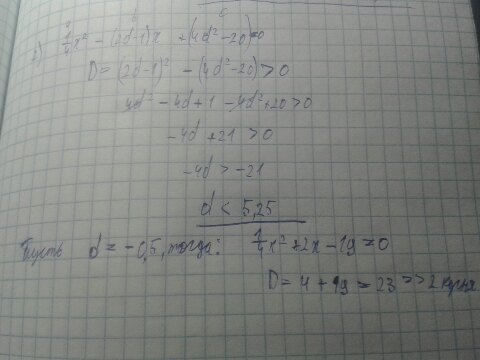 b c
2) 1/4x² - (2d-1)x + (4d²-20)=0
D = (2d-1)² - (4d²-20) > 0
4d² - 4d + 1 - 4d² + 20 > 0
-4d + 21 > 0
-4d > -21
d < 5,25
Пусть d = -0,5, тогда: 1/4x² + 2x - 19 = 0
D = 4 + 19 = 23 => 2 корня